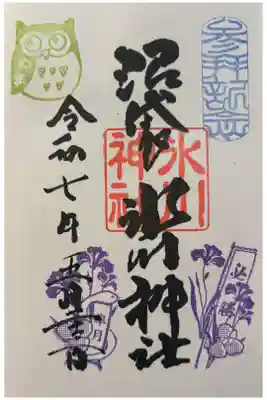 参拝記念
沼袋氷川神社
氷川神社
令和七年五月吉日